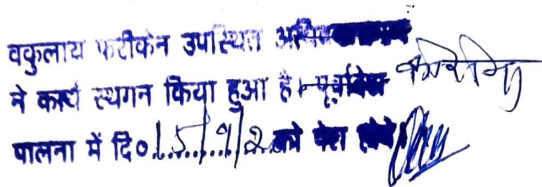 वकुलाय फरीकेन उपस्थित
ने कार्य स्थगन किया हुआ है। पूर्वादेश
पालना में दि० 15/9/2 को पेश होवे